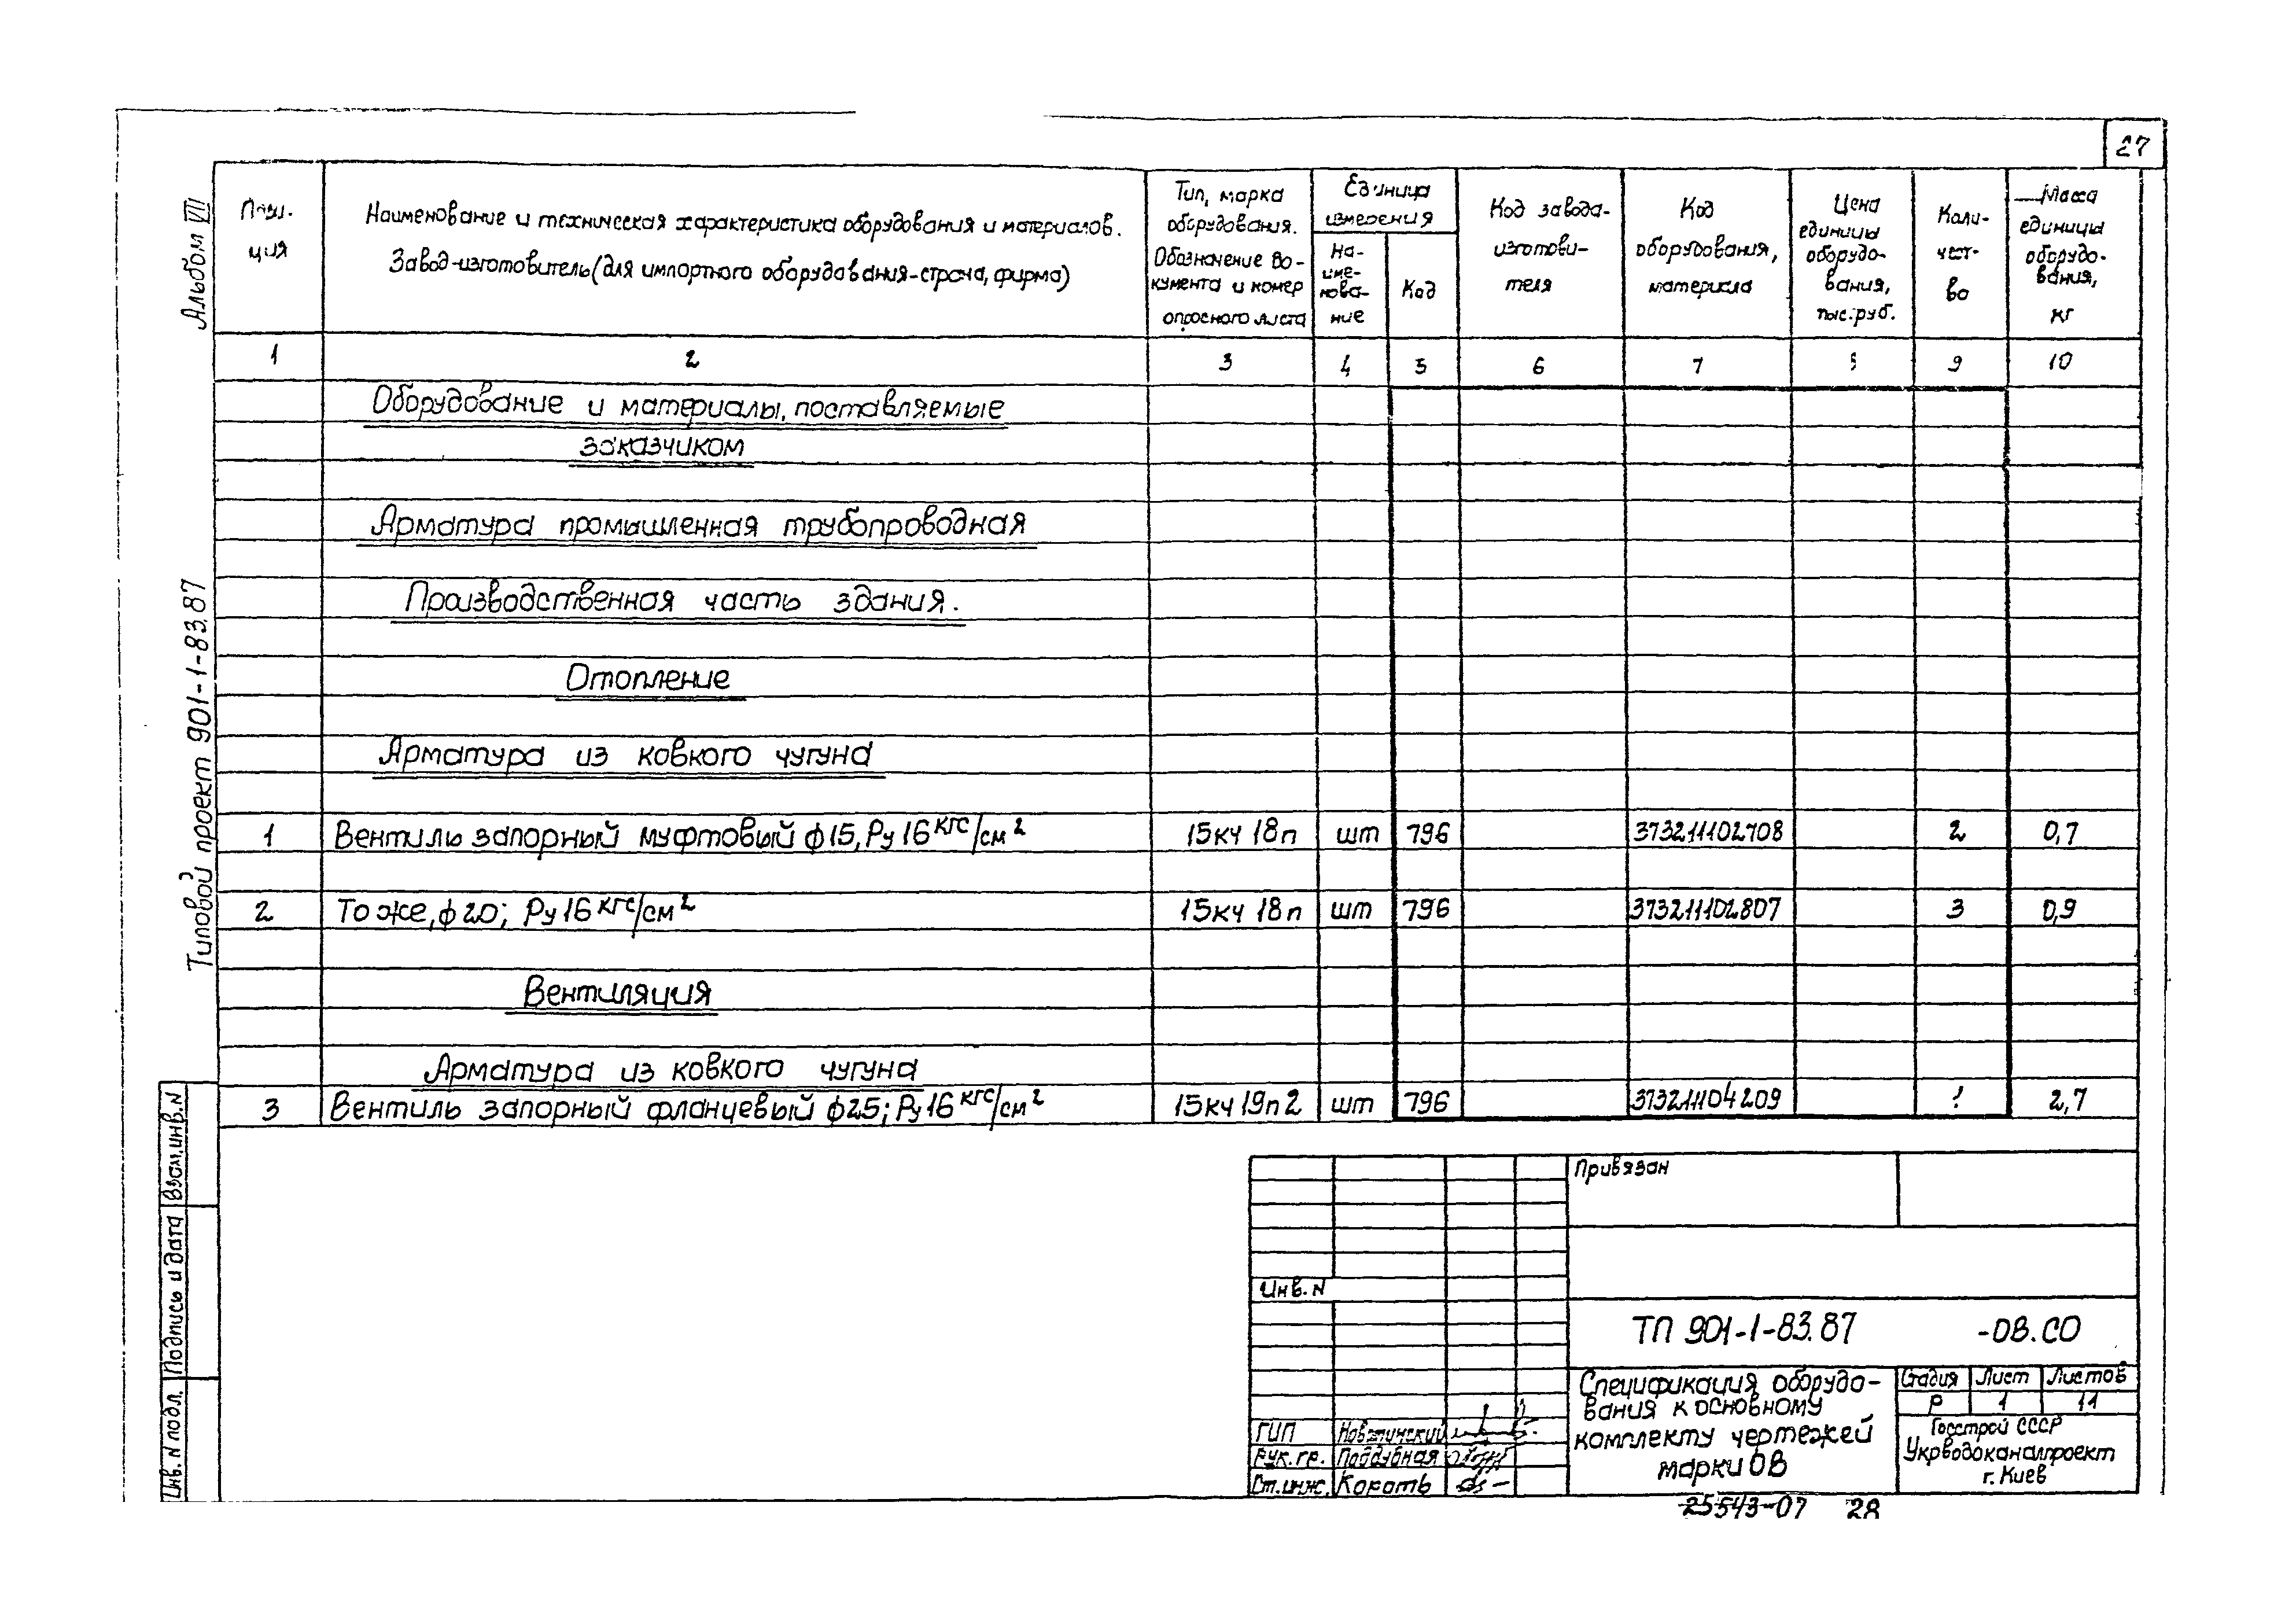 27
Альбом VII
Типовой проект 901-1-83.87
Пози-
ция
Наименование и техническая характеристика оборудования и материалов.
Завод-изготовитель (для импортного оборудования-страна, фирма)
Тип, марка
оборудования.
Обозначение до-
кумента и номер
опросного листа
Единица
измерения
На-
име-
нова-
ние
Код
Код завода-
изготови-
теля
Код
оборудования,
материала
Цена
единицы
оборудо-
вания,
тыс.руб.
Коли-
чест-
во
Масса
единицы
оборудо-
вания,
кг
1 2 3 4 5 6 7 8 9 10
Оборудование и материалы, поставляемые
заказчиком
Арматура промышленная трубопроводная
Производственная часть здания.
Отопление
Арматура из ковкого чугуна
1 Вентиль запорный муфтовый ф15, Ру 16 кгс/см² 15кч 18п шт 796 373211102708 2 0,7
2 То же, ф20; Ру 16 кгс/см² 15кч 18п шт 796 373211102807 3 0,9
Вентиляция
Арматура из ковкого чугуна
3 Вентиль запорный фланцевый ф25; Ру 16 кгс/см² 15кч 19п2 шт 796 373211104209 2,7
Взам.инв.N
Подпись и дата
Инв. N подл.
Привязан
Инв. N
ТП 901-1-83.87 -ОВ.СО
Спецификация оборудо-
вания к основному
комплекту чертежей
марки ОВ
Стадия Лист Листов
Р 1 11
Госстрой СССР
Укрводоканалпроект
г. Киев
ГИП
Рук. гр. Поддубная
Ст.инж. Короть
25543-07 28